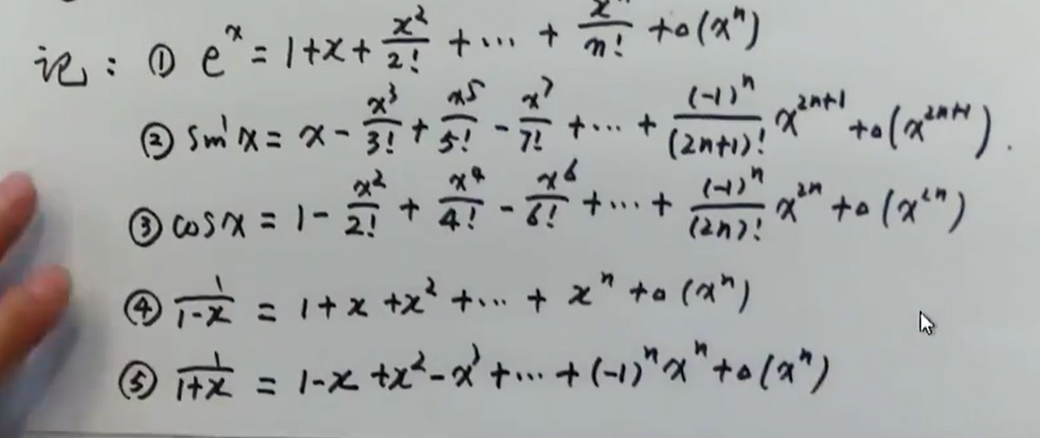 记: ① e^x = 1+x+\frac{x^2}{2!}+⋯+\frac{x^n}{n!}+o(x^n)
② sin x = x-\frac{x^3}{3!}+\frac{x^5}{5!}-\frac{x^7}{7!}+⋯+\frac{(-1)^n}{(2n+1)!}x^{2n+1}+o(x^{2n+1}).
③ cos x = 1-\frac{x^2}{2!}+\frac{x^4}{4!}-\frac{x^6}{6!}+⋯+\frac{(-1)^n}{(2n)!}x^{2n}+o(x^{2n})
④ \frac{1}{1-x} = 1+x+x^2+⋯+x^n+o(x^n)
⑤ \frac{1}{1+x} = 1-x+x^2-x^3+⋯+(-1)^n x^n+o(x^n)